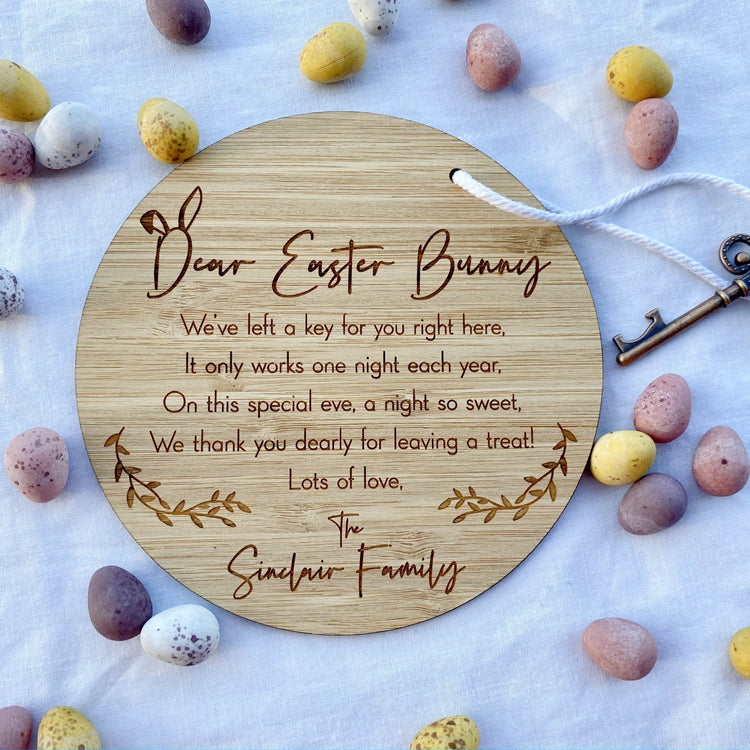 Dear Easter Bunny
We've left a key for you right here,
It only works one night each year,
On this special eve, a night so sweet,
We thank you dearly for leaving a treat!
Lots of love,
The
Sinclair Family